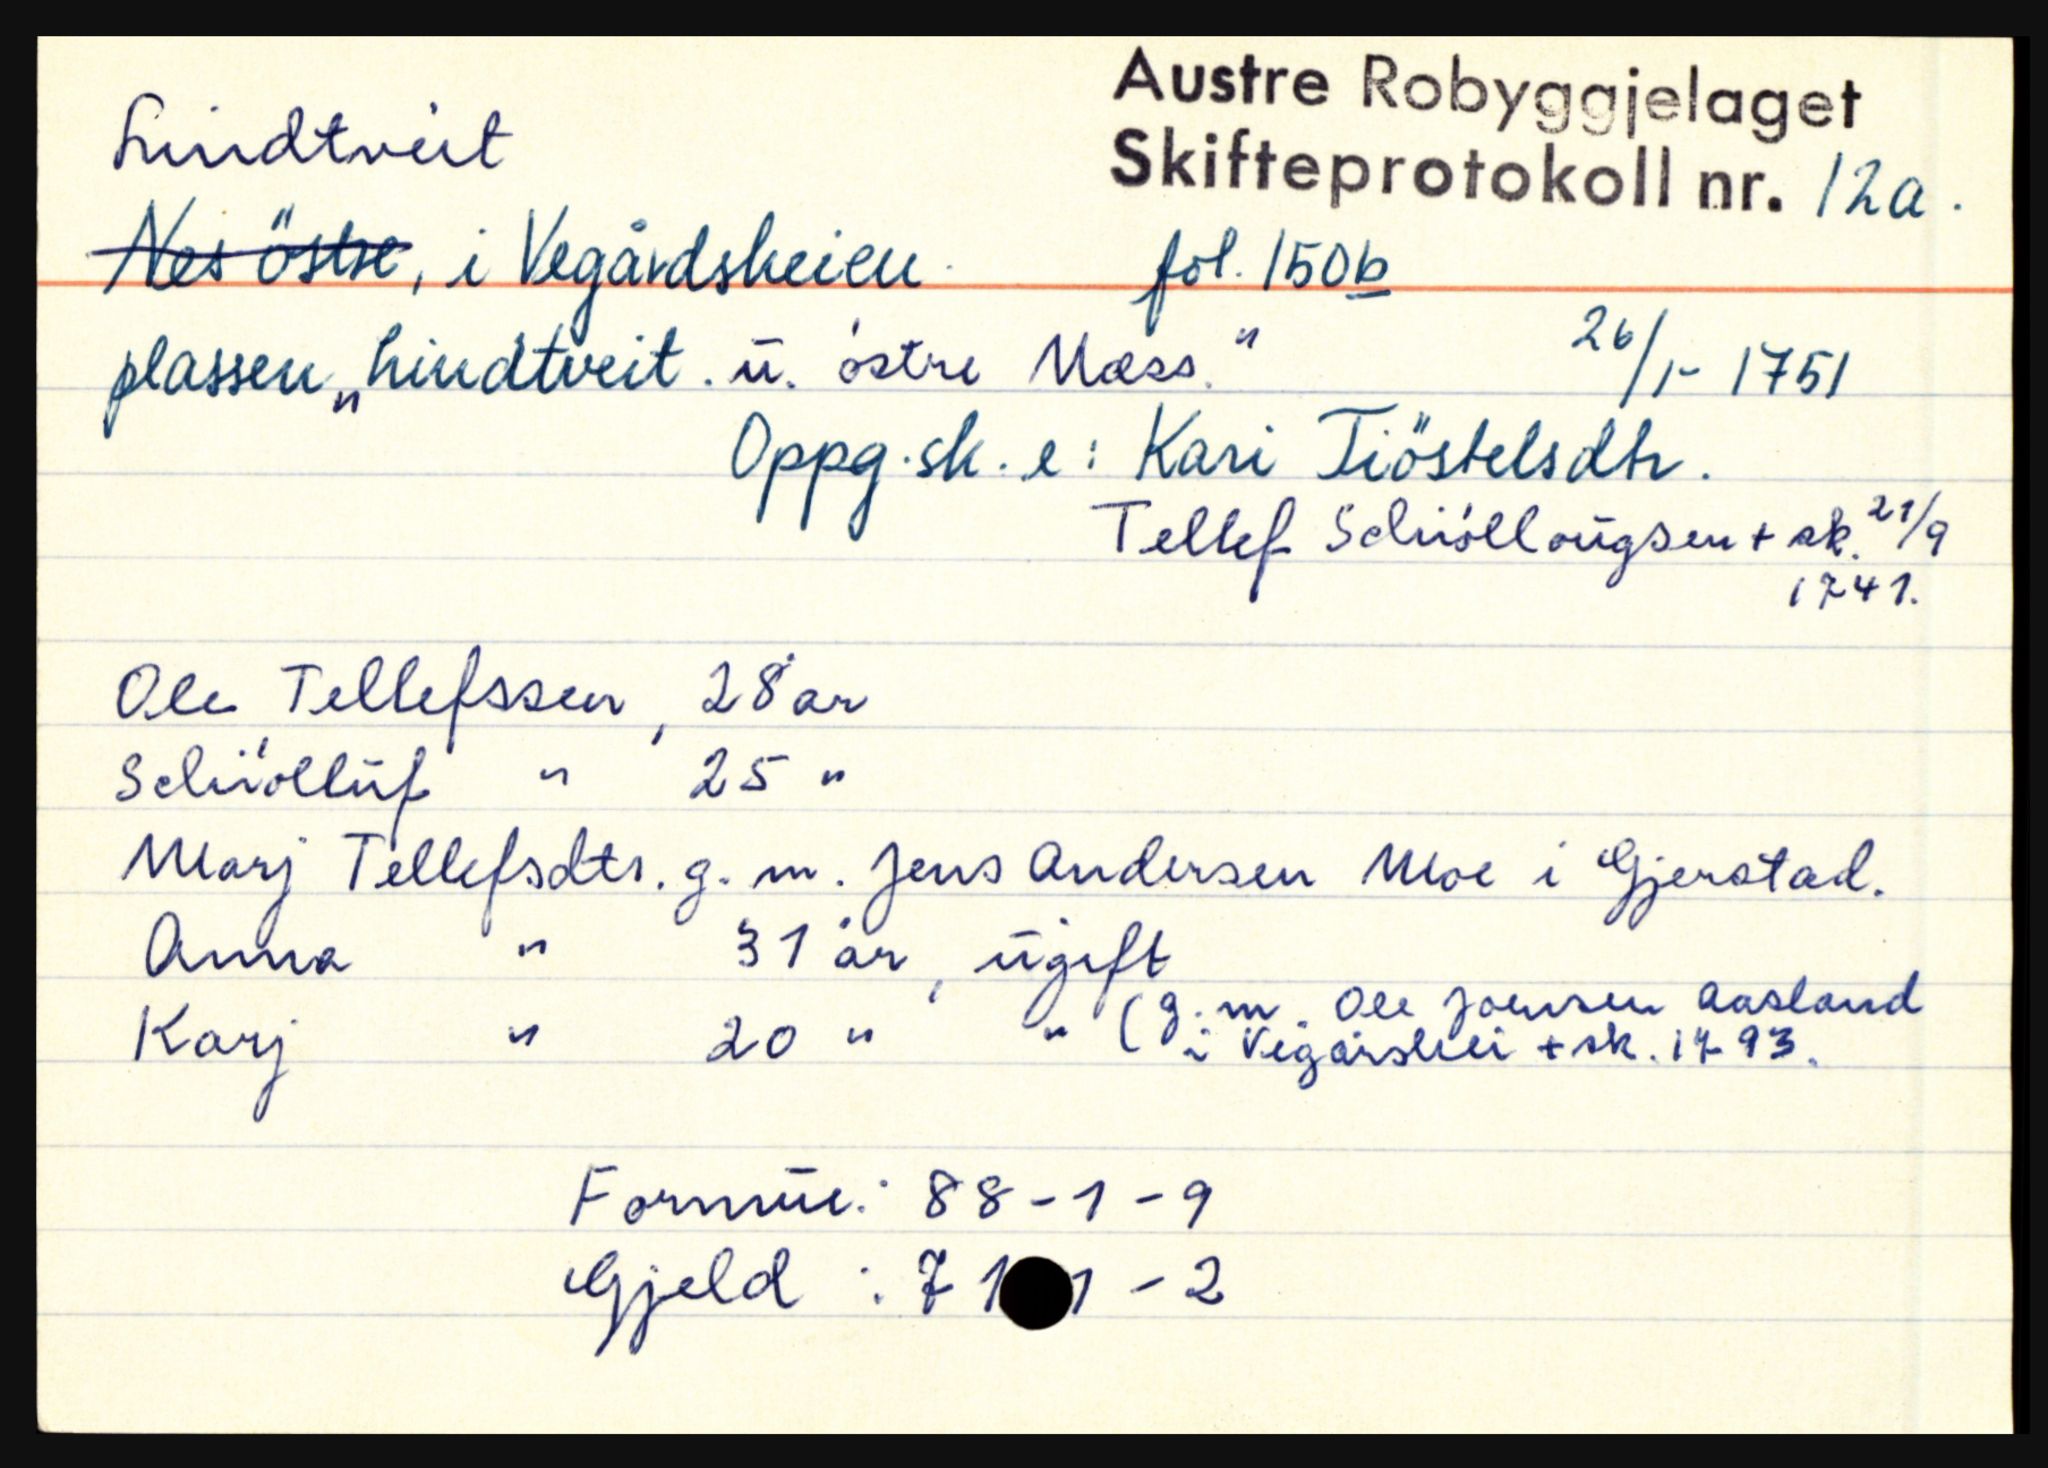 Austre Robyggjelaget
Skifteprotokoll nr. 12a.
Lindtveit
Nes östre, i Vegårdsheien fol. 150b
plassen „Lindtveit. u. östre Næss." 26/1- 1751
Oppg. sk. e: Kari Tiöstelsdtr.
Tellef Schiöllougsen + sk. 21/9
1741.
Ole Tellefssen, 28 år
Schiölluf " 25 "
Marj Tellefsdtr. g. m. Jens Andersen Moe i Gjerstad.
Anna " 31 år, ugift
Karj " 20 " " (g. m. Ole Joensen Aasland
i Vegårshei + sk. 1793.
Formue: 88-1-9
Gjeld : 71 1-2